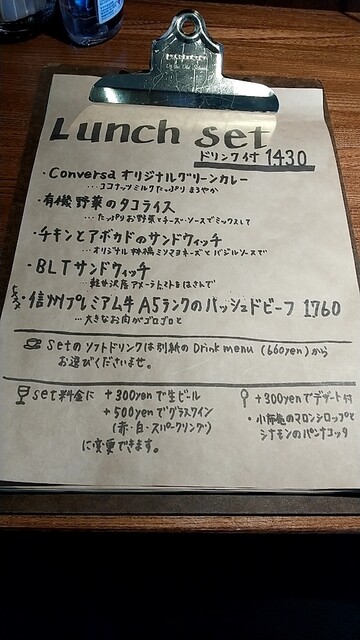 Lunch set
ドリンク付 1430
・Conversa オリジナルグリーンカレー
...ココナッツミルクたっぷり まろやか
・有機野菜のタコライス
...たっぷりお野菜とチーズ・ソースでミックスして
・チキンとアボカドのサンドウィッチ
...オリジナル 特製ミソマヨネーズとバジルソースで
・BLTサンドウィッチ
...軽井沢産アメーラトマトをはさんで
・信州プレミアム牛A5ランクのハッシュドビーフ 1760
...大きなお肉がゴロゴロと
Setのソフトドリンクは別紙のDrink menu (660yen)から
お選びくださいませ。
set料金に +300yenで生ビール
+500yenでグラスワイン
(赤・白・スパークリング)
に変更できます。
+300yenでデザート付
・小布施のマロンシロップと
シナモンのパンナコッタ